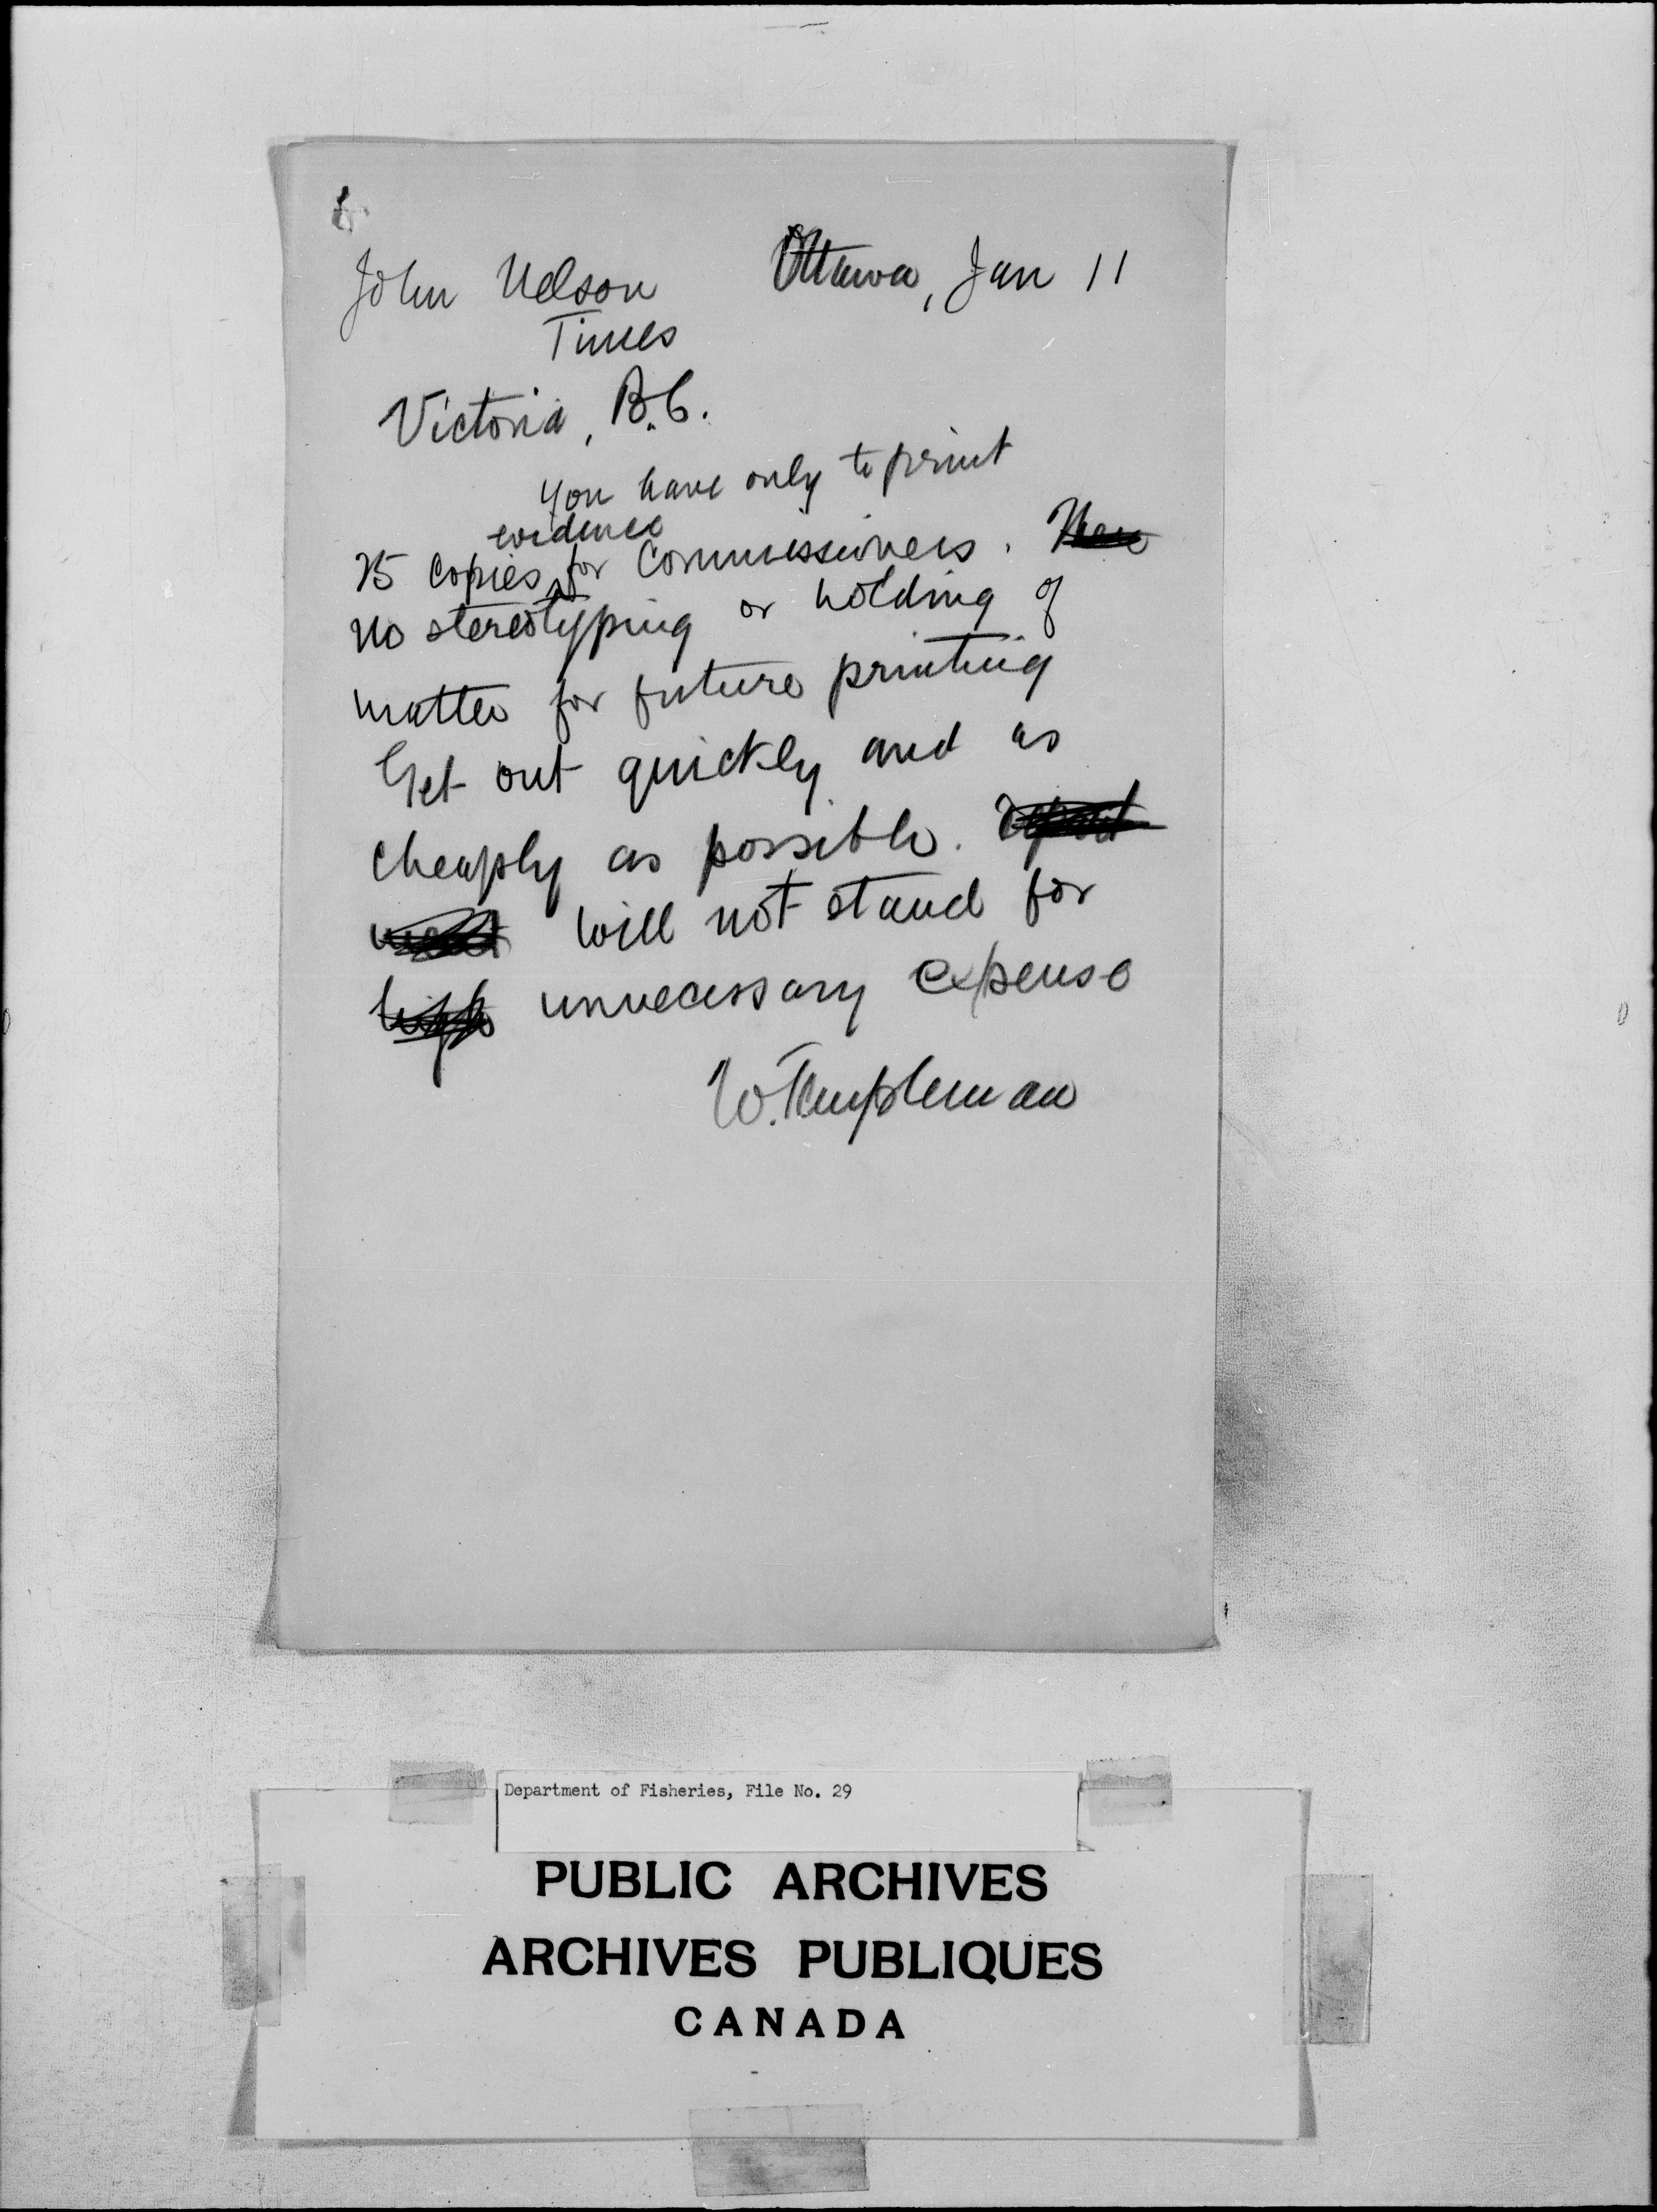 Ottawa, Jan 11
John Nelson
Times
Victoria, B.C.
You have only to print
evidence
25 copies for Commissioners.
No stereotyping or holding of
matter for future printing
Get out quickly and as
cheaply as possible.
will not stand for
unnecessary expense
W. Templeman
Department of Fisheries, File No. 29
PUBLIC ARCHIVES
ARCHIVES PUBLIQUES
CANADA